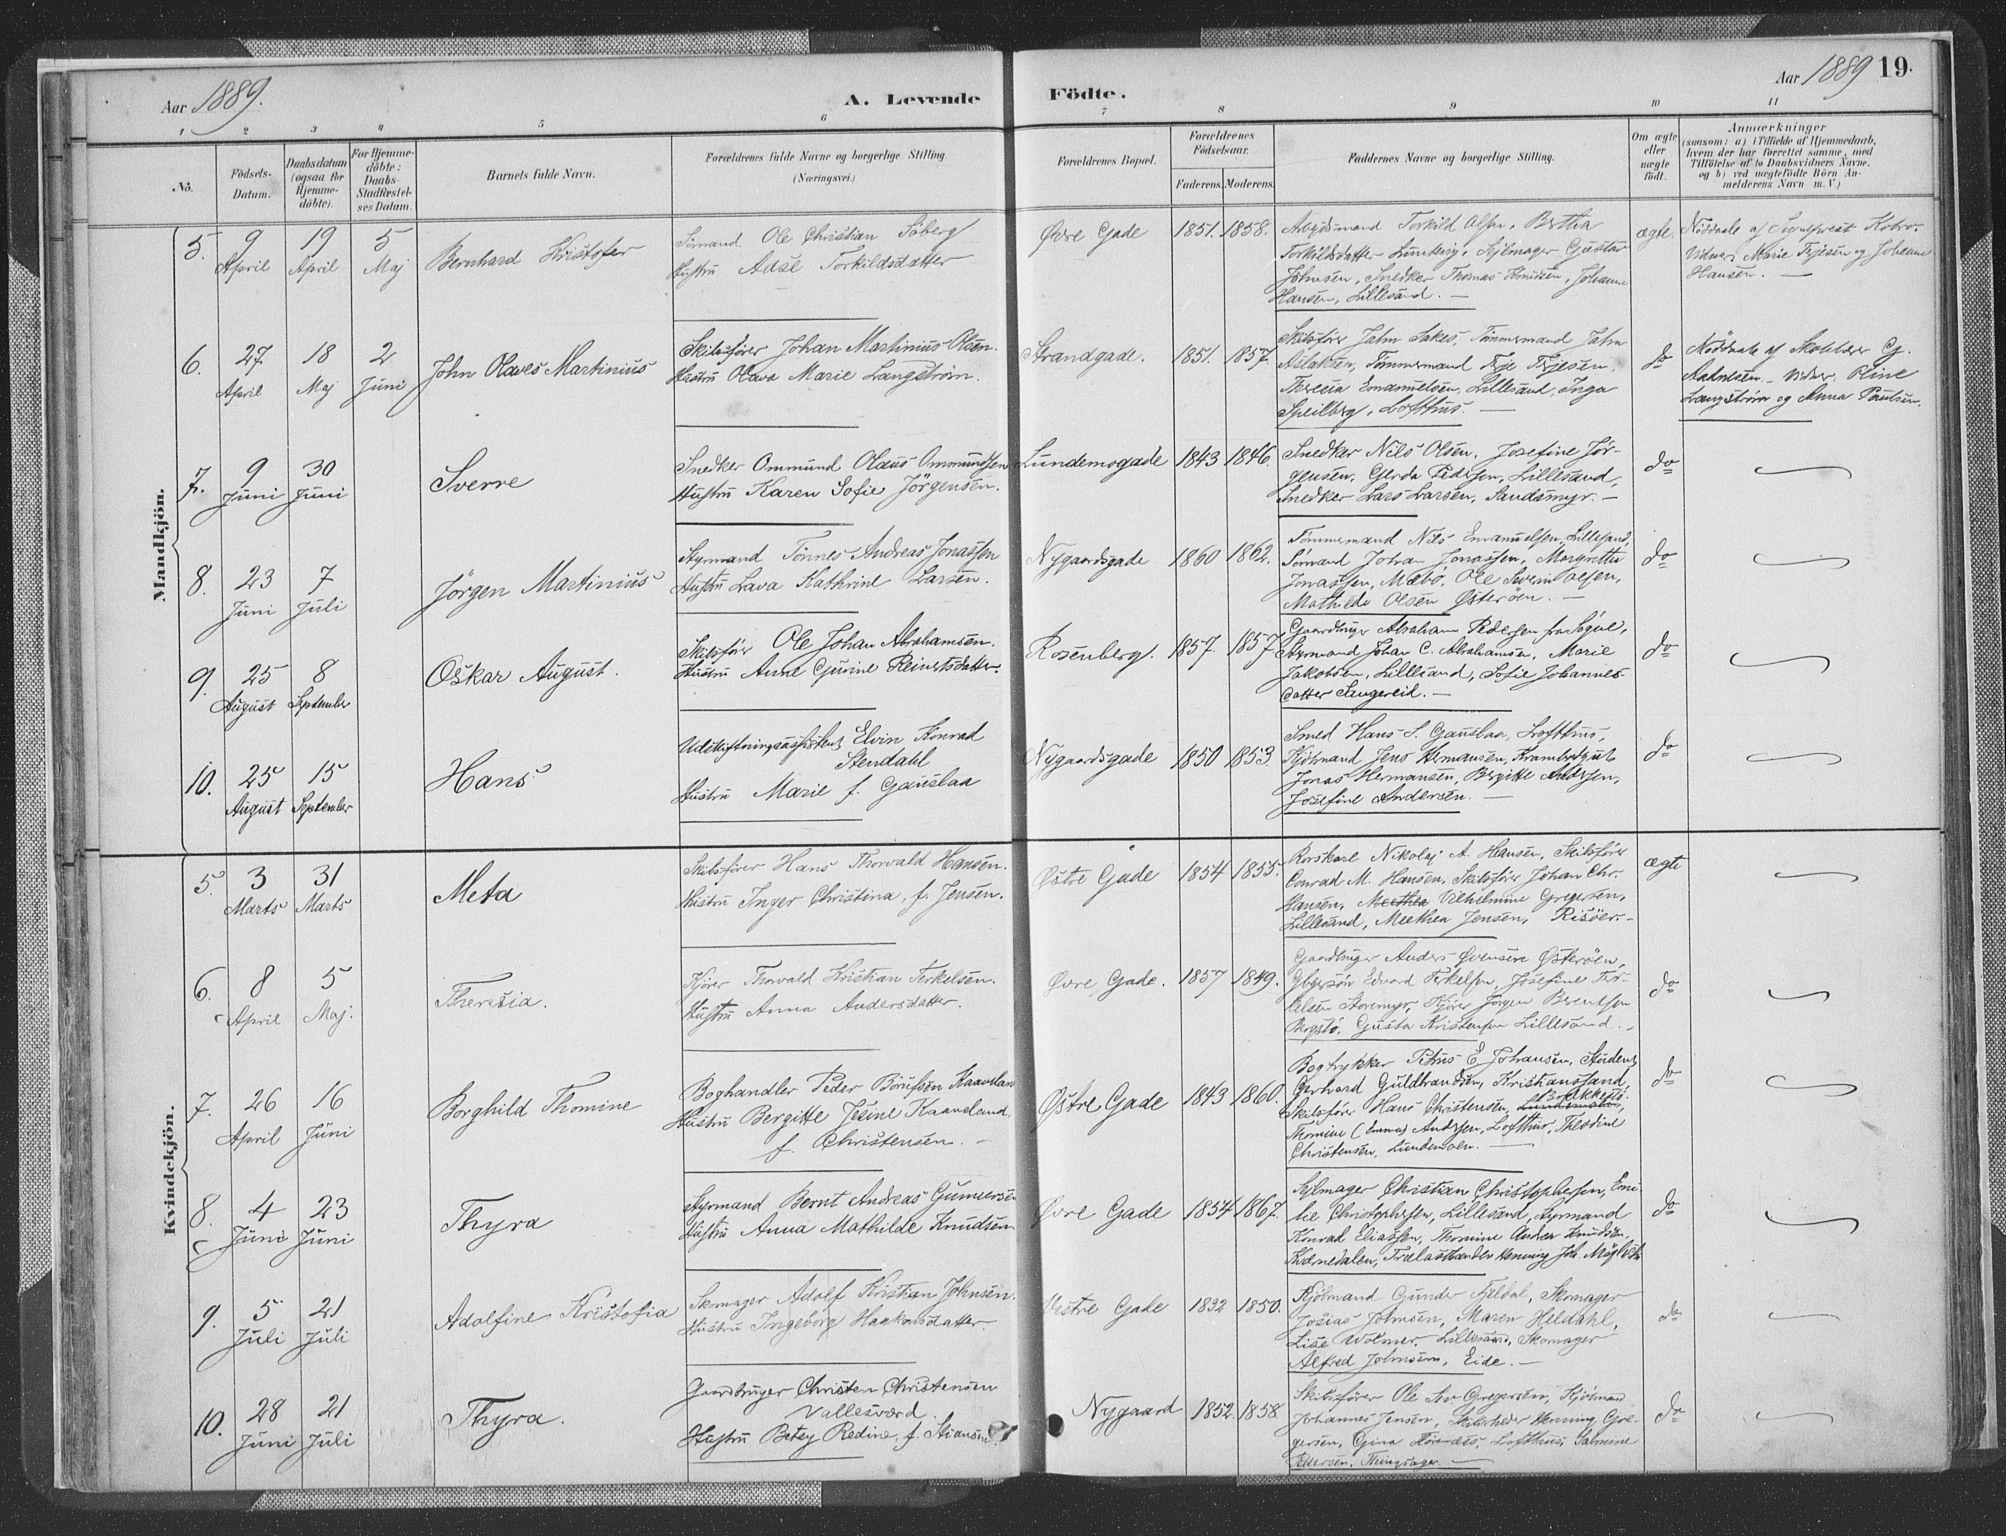 Aar 1889.
A. Levende
Födte.
Aar 1889
19.
1 2 3 4 5 6 7 8 9 10 11
Nö.
Födsels-Datum.
Daabsdatum (ogsaa for Hjemme-döbte).
For Hjemme-döbte: Daabs-Stadfæstelses Datum.
Barnets fulde Navn.
Forældrenes fulde Navne og borgerlige Stilling (Næringsvei.)
Forældrenes Bopæl.
Forældrenes Födselsaar.
Faderens. Moderens.
Faddernes Navne og borgerlige Stilling.
Om ægte eller uægte födt.
Anmærkninger
(saasom: a) i Tilfælde af Hjemmedaab, hvem der har forrettet samme, med Tilföielse af to Daabsvidners Navne, og b) ved uægtefödte Börn Anmelderens Navn m. V.)
Mandkjön.
5. 9 April 19 April 5 Maj Bernhard Kristofer
Sømand Ole Christian Søberg
Hustru Adse Torkildsdatter
Øvre Gade 1851. 1858.
Arbejdsmand Torkild Olsen, Berthia
Torkildsdatter, Sejlmager Gustav
Johnsen, Snedker Thomas Knudsen, Johanne
Hansen, Lillesand.
ægte.
Nöddaab af
Vidner: Marie Terjesen og Johanne
Hansen.
6. 27 April 18 Maj 2 Juni John Olaves Martinius
Skibsfører Johan Martinius Olsen.
Hustru Olava Marie Langstrøm.
Strandgade. 1851. 1857.
Skibsfører John Tømmermand John
Aslaksen, Tømmermand Terje Terjesen,
Theresia Emanuelsen, Lillesand, Inga
Speilberg, Lofthus.
do
Nöddaab af
Vidner:
Langstrøm og Anna Paulsen.
7. 9 Juni 30 Juni Sverre
Snedker Ommund Olaus Ommundsen
Hustru Karen Sofie Jörgensen.
Lundemogade 1843 1846.
Snedker Nils Olsen, Josefine Jør-
gensen, Gerda Pedersen, Lillesand,
Snedker Lars Larsen, Sandsmyr.
do
8. 23 Juni 7 Juli Jörgen Martinius
Styrmand Tönnes Andreas Jonassen
Hustru Lava Kathrine Larsen.
Nygaardsgade 1860 1862.
Tømmermand Nils Emanuelsen, Lillesand,
Sømand Johan Jonassen, Margrethe
Jonassen, Mæbø, Ole Svennolsen,
Mathilde Olsen Østerøen.
do
9. 25 August 8 September Oskar August.
Skibsfører Ole Johan Abrahamsen.
Hustru Anne Gusine Reinertsdatter.
Rosenberg. 1857. 1857
Gaardbruger Abraham Pedersen fra Søgne,
Styrmand Johan C. Abrahamsen, Marie
Jakobsen, Lillesand, Sofie Johannes-
datter Sangereid.
do
10. 25 August 15 September Hans
Udskiftningsassistent Elvin Konrad
Stendahl
Hustru Marie f. Gauslaa
Nygaardsgade 1850 1853.
Smed Hans S. Gauslaa, Lofthus,
Kjøbmand Jens Hermansen, Krambodgut
Jonas Hermansen, Bergitte Andersen,
Josefine Andersen.
do
Kvindekjön.
5. 3 Marts 31 Marts Meta
Skibsfører Hans Thorvald Hansen.
Hustru Inger Christina, f. Jensen.
Østre Gade 1854 1855.
Rorskarl Nikolaj A. Hansen, Skibsfører
Conrad M. Hansen, Skibsfører Johan Chr.
Hansen, Vilhelmine Gregersen,
Lillesand, Methea Jensen, Risöer.
ægte
6. 8 April 5 Maj. Theresia.
Kjører Thorvald Kristian Terkelsen.
Hustru Anna Andersdatter.
Øvre Gade. 1857 1849.
Gaardbruger Anders Evensen Østerøen,
Edvard Terkelsen, Josefine Ter-
kelsen Storemyr, Kjører Jørgen Berentsen
Bergstø, Gusta Kristensen Lillesand.
do
7. 26 April 16 Juni Borghild Thomine
Boghandler Peder Børufsen Kaaveland
Hustru Bergitte Jesine Kaaveland
f. Christensen.
Østre Gade 1843 1860.
Bogtrykker Petrus E. Johansen, Student
Gerhard Guldbrandsen, Kristianssand,
Skibsfører Hans Christensen, Brækkestø.
Thomine (Emma) Andersen, Lofthus, Theodine
Christensen, Lundemoen.
do
8. 4 Juni 23 Juni Thyra
Styrmand Bernt Andreas Gunnersen
Hustru Anna Mathilde Knudsen.
Øvre Gade 1854 1867.
Sejlmager Christian Christophersen, Emi-
lie Christophersen, Lillesand, Styrmand
Konrad Eliassen, Thomine Andrea Knudsen,
Kværnedalen, Trælasthandler Henning Joh. Møglestu
do
9. 5 Juli 21 Juli Adolfine Kristofia
Skomager Adolf Kristian Johnsen.
Hustru Ingeborg Haakonsdatter
Vestre Gade 1832 1850.
Kjöbmand Gunder Heldal, Skomager
Josias Johnsen, Maren Heldahl,
Lise Wolmer, Lillesand, Skomager
Alfred Johnsen, Eide.
do
10. 28 Juni 21 Juli Thyra.
Gaardbruger Christen Christensen
Vallesværd.
Hustru Betzy Redine, f. Stiansen.
Nygaard 1852. 1858
Skibsfører Ole Gregersen, Kjöbmand
Johannes Jensen, Skibsreder Henning Gre-
gersen, Gina Lofthus, Salmine
Pettersen, Thingsager.
do